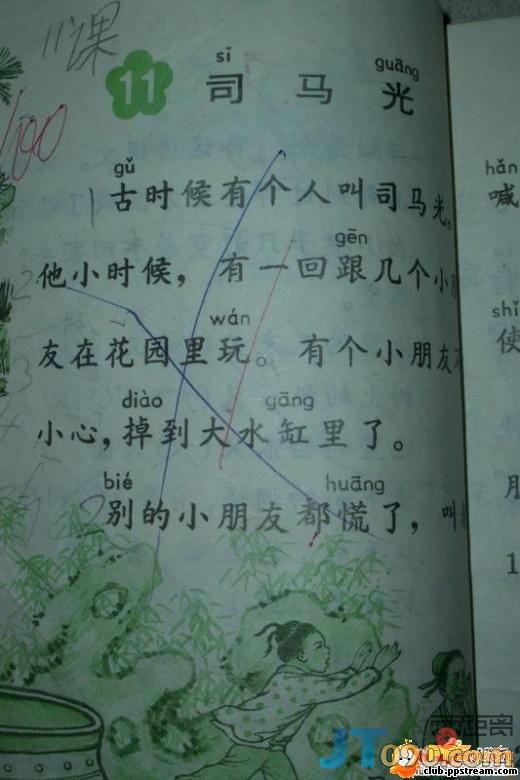 11课
100
11 司马光
sī guāng
gǔ
古时候有个人叫司马光。
gēn
他小时候，有一回跟几个小
wán
友在花园里玩。有个小朋友
diào gāng
小心，掉到大水缸里了。
bié huāng
别的小朋友都慌了，叫
hǎn
喊
shǐ
使
1
club.ppstream.com